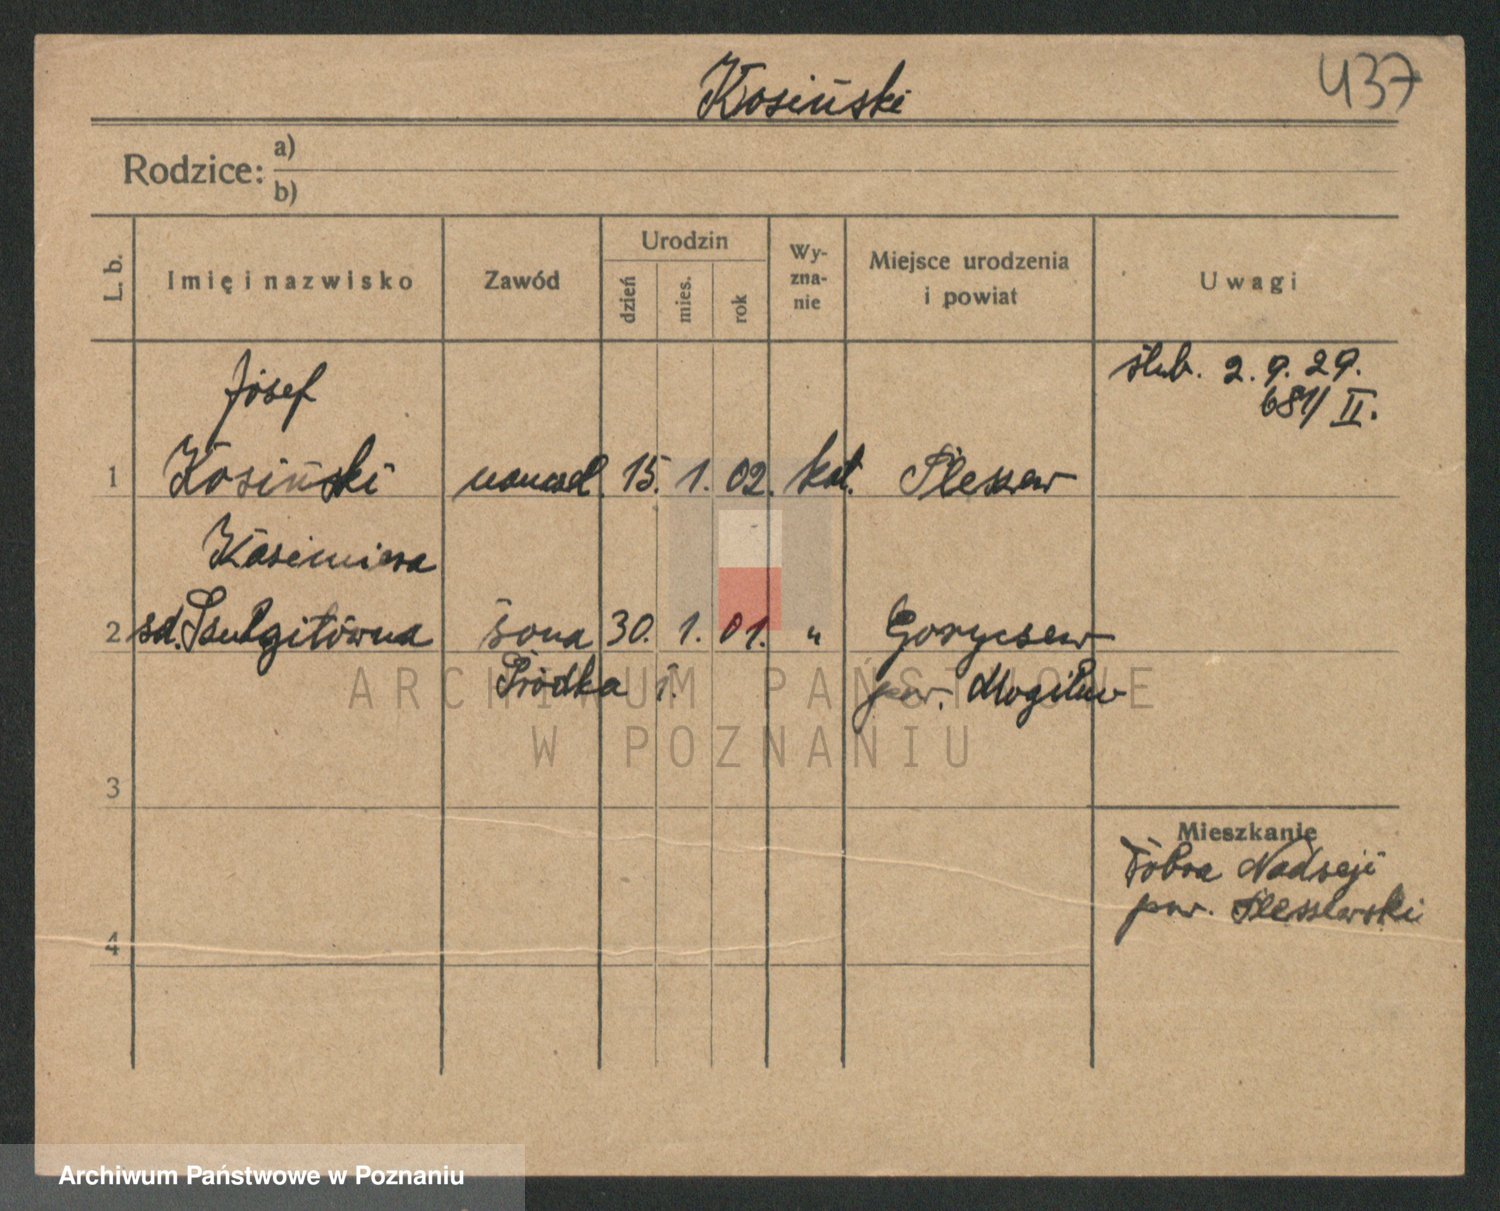 Kosiński
437
Rodzice: a)
b)
L. b.
Imię i nazwisko
Zawód
Urodzin
dzień
mies.
rok
Wy-
zna-
nie
Miejsce urodzenia
i powiat
Uwagi
ślub. 2. 9. 29.
681/ II.
Józef
1 Kosiński 15. 1. 02. kat. Pleszew
Kazimiera
2 żona 30. 1. 01. " Goryszew
Śródka 1. pow. Mogilno
3
4
Mieszkanie
Dobra Nadzieji
pow. Pleszewski
ARCHIWUM PAŃSTWOWE
W POZNANIU
Archiwum Państwowe w Poznaniu